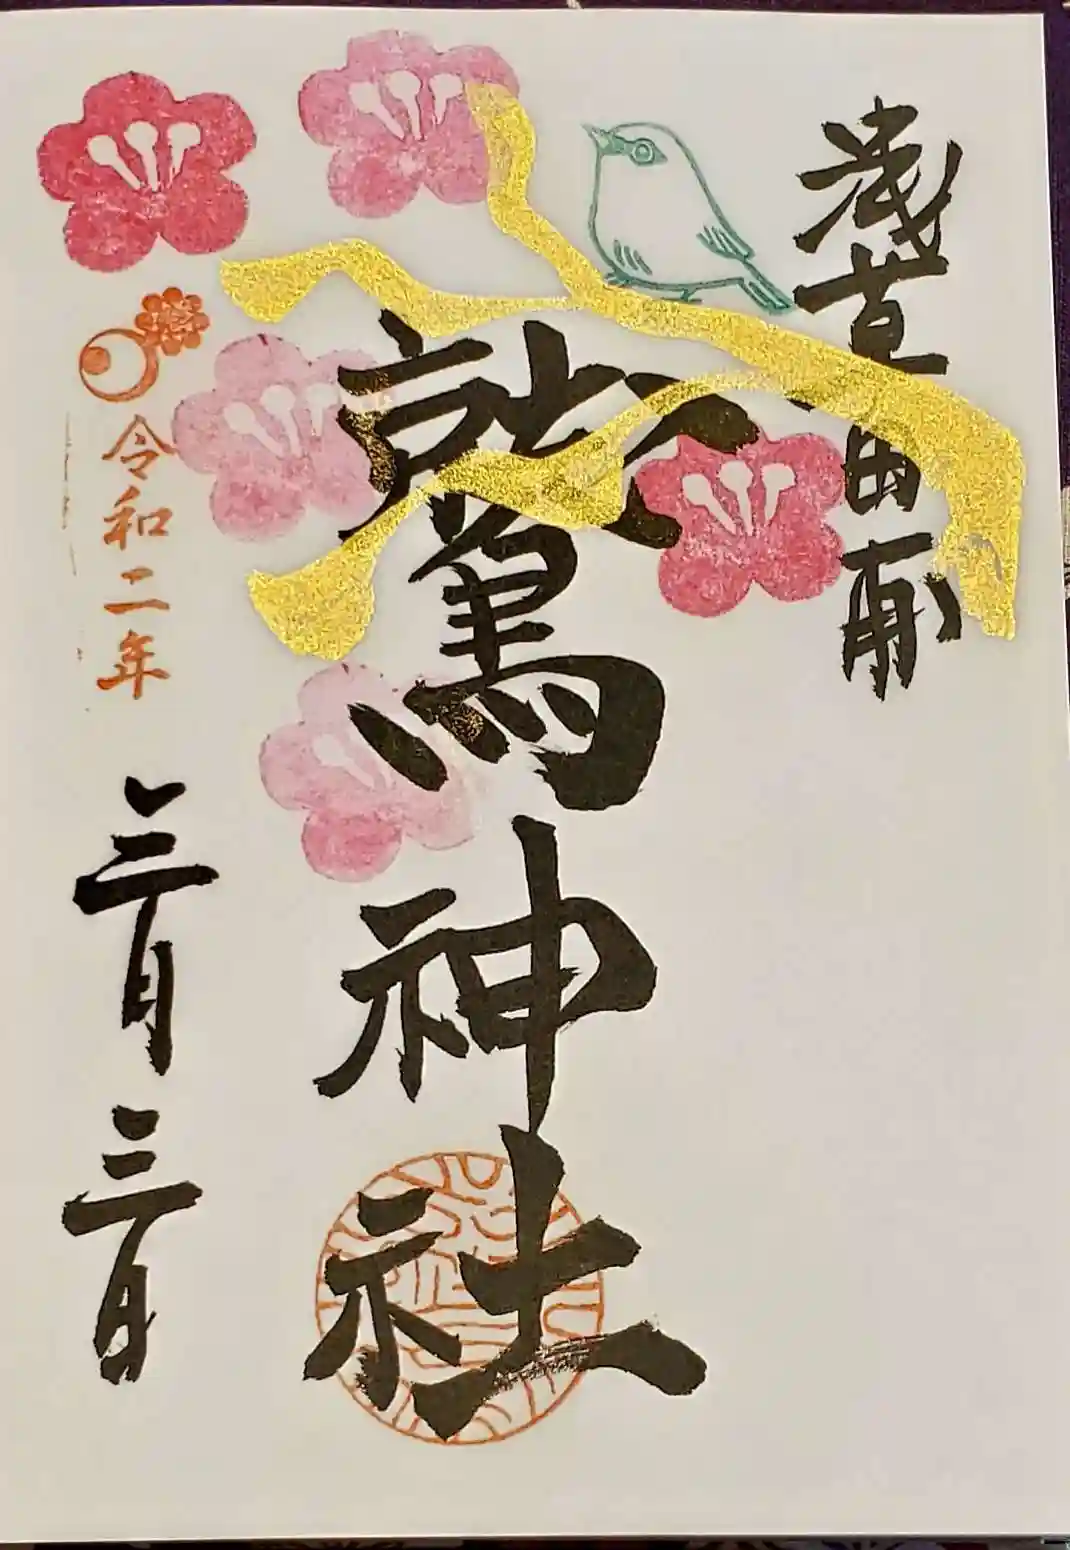 浅草田甫
鷲神社
令和二年三月三日